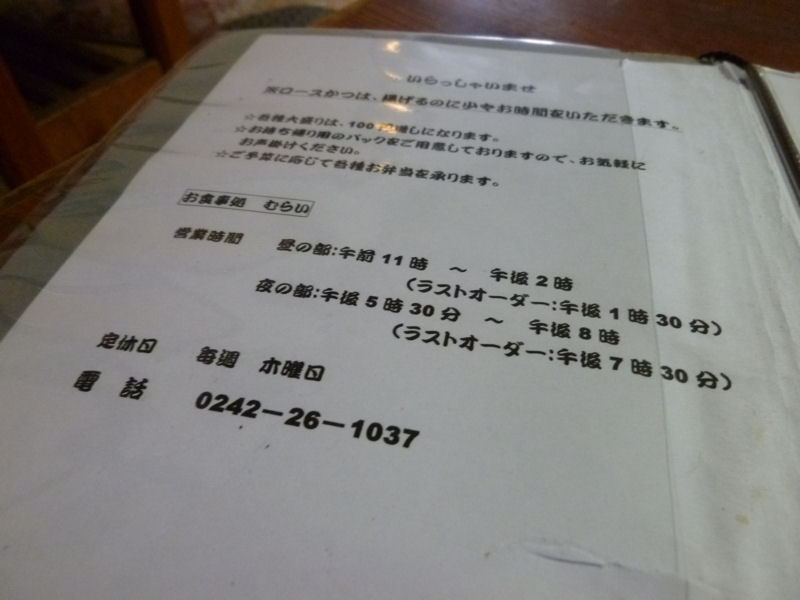 いらっしゃいませ
ロースかつは、揚げるのに少々お時間をいただきます。
☆各種大盛りは、100円増しになります。
☆お持ち帰り用のパックをご用意しておりますので、お気軽に
お声掛けください。
☆ご予算に応じて各種お弁当を承ります。
お食事処 むらい
営業時間 昼の部:午前11時 ～ 午後2時
(ラストオーダー:午後1時30分)
夜の部:午後5時30分 ～ 午後8時
(ラストオーダー:午後7時30分)
定休日 毎週 木曜日
電話 0242-26-1037